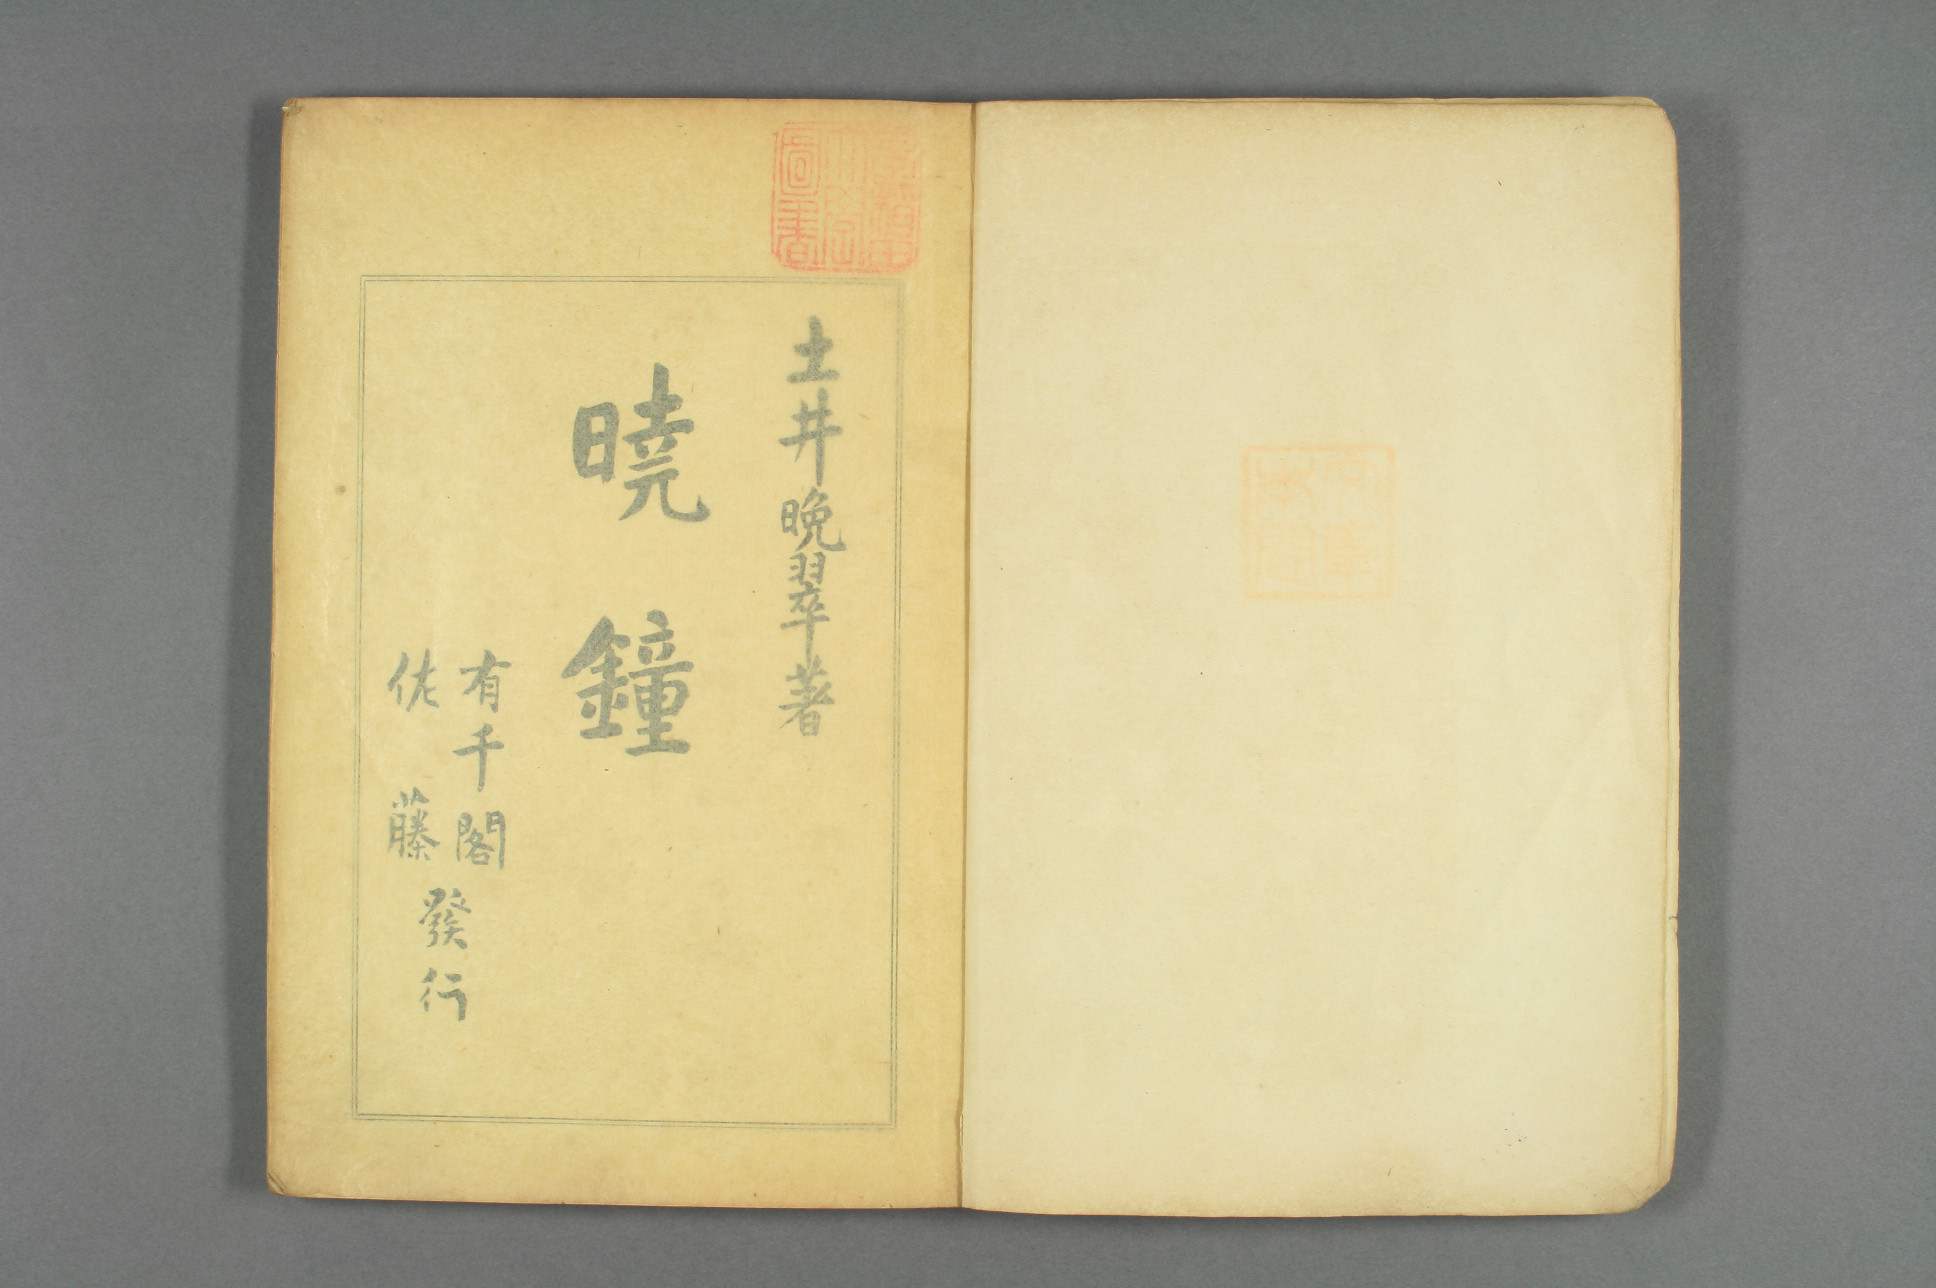 土井晩翠著
暁鐘
有千閣
佐藤
發行
圖書